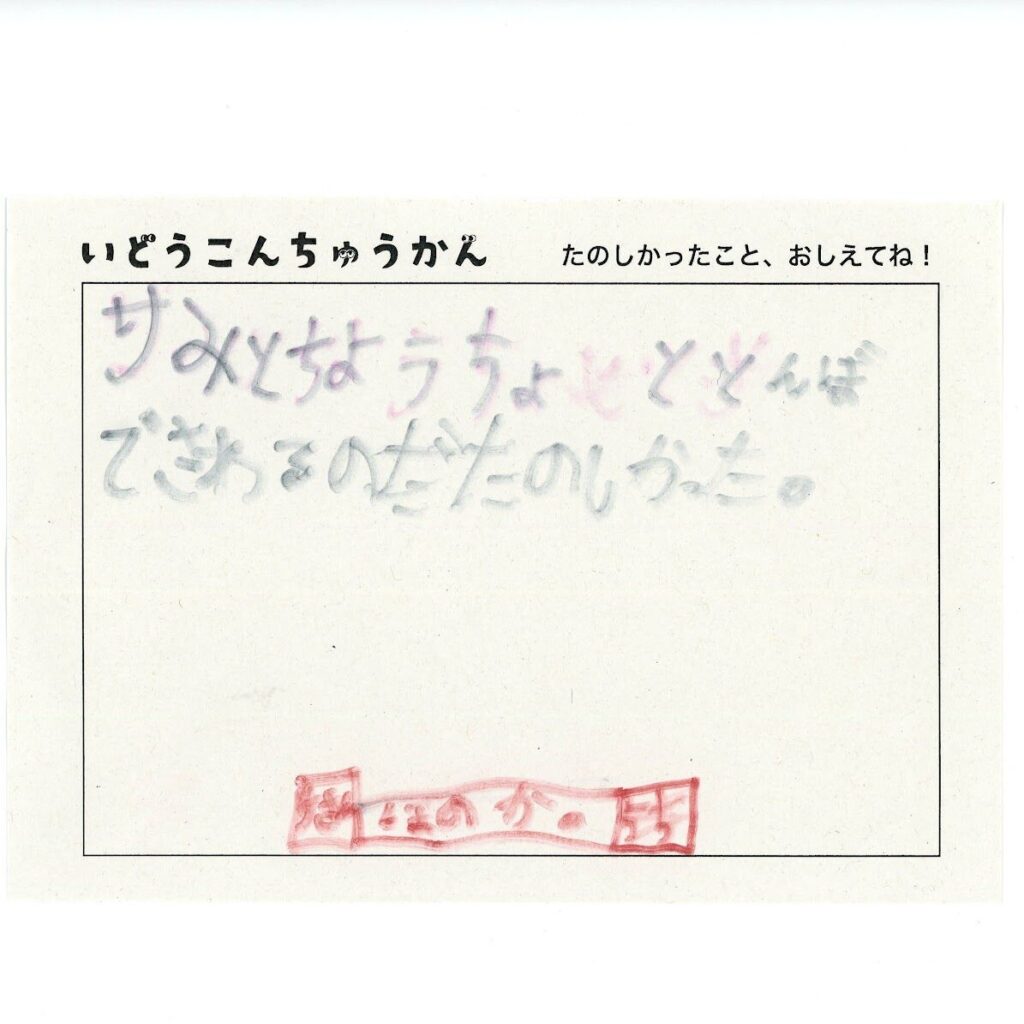 いどうこんちゅうかん
たのしかったこと、おしえてね！
サみとちようちょととんぼ
できわるのがたのしかった。
ほのか。